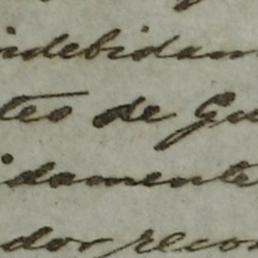 indebidam
tes de Gu
idamente
dor recon